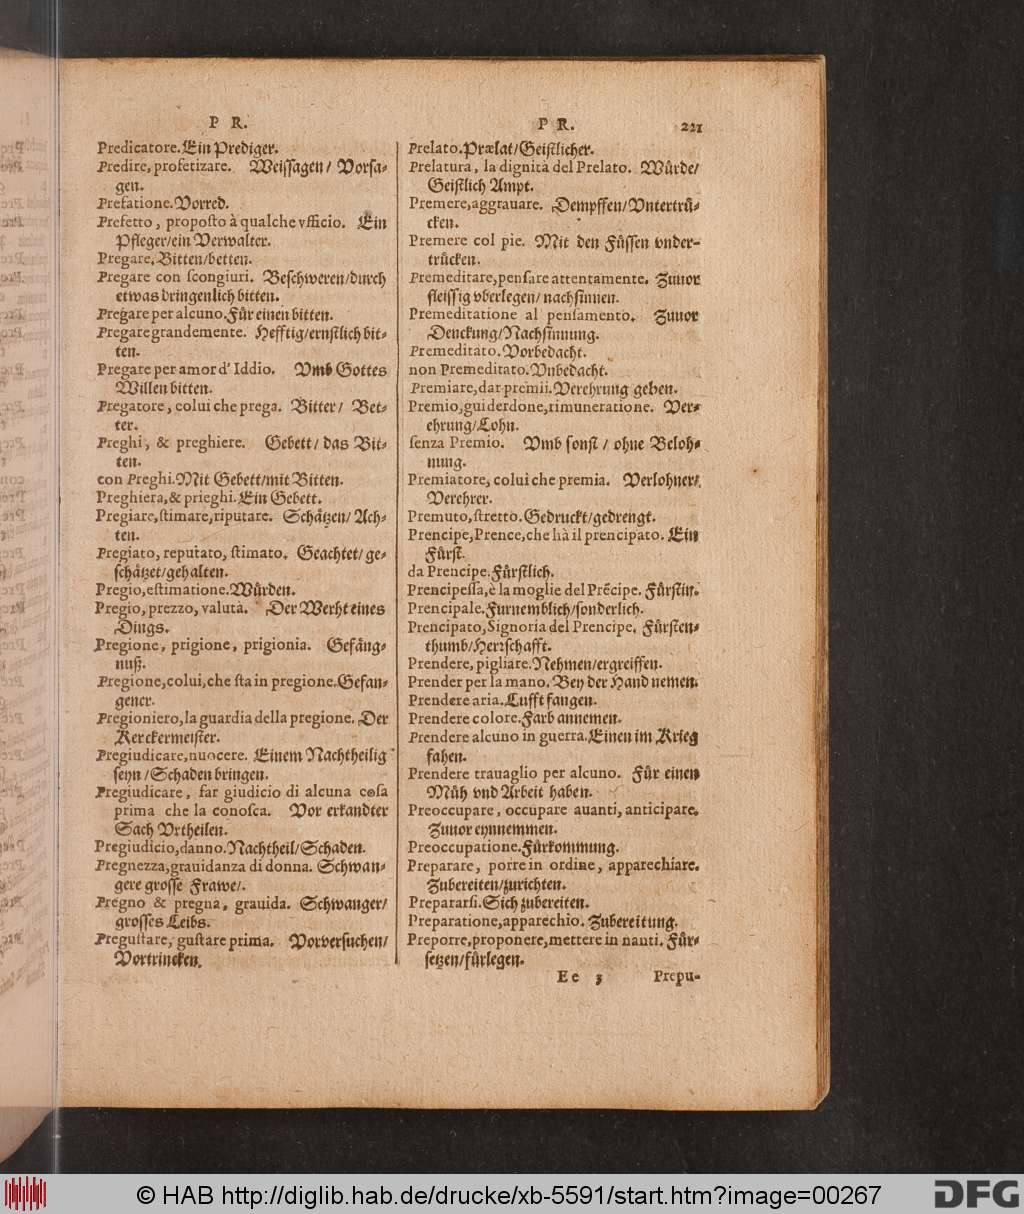 P R.
Predicatore. Ein Prediger.
Predire, profetizare. Weiſſagen/ Vorſa-
gen.
Prefatione. Vorred.
Prefetto, propoſto à qualche vfficio. Ein
Pfleger/ein Verwalter.
Pregare. Bitten/betten.
Pregare con ſcongiuri. Beſchweren/durch
etwas dringenlich bitten.
Pregare per alcuno. Fuͤr einen bitten.
Pregare grandemente. Hefftig/ernſtlich bit-
ten.
Pregare per amor d' Iddio. Vmb Gottes
Willen bitten.
Pregatore, colui che prega. Bitter/ Bet-
ter.
Preghi, & preghiere. Gebett/ das Bit-
ten.
con Preghi. Mit Gebett/mit Bitten.
Preghiera, & prieghi. Ein Gebett.
Pregiare, ſtimare, riputare. Schaͤtzen/ Ach-
ten.
Pregiato, reputato, ſtimato. Geachtet/ ge-
ſchaͤtzet/gehalten.
Pregio, eſtimatione. Wuͤrden.
Pregio, prezzo, valuta. Der Werht eines
Dings.
Pregione, prigione, prigionia. Gefaͤng-
nuß.
Pregione, colui, che ſta in pregione. Gefan-
gener.
Pregioniero, la guardia della pregione. Der
Kerckermeiſter.
Pregiudicare, nuocere. Einem Nachtheilig
ſeyn/Schaden bringen.
Pregiudicare, far giudicio di alcuna coſa
prima che la conoſca. Vor erkandter
Sach Vrtheilen.
Pregiudicio, danno. Nachtheil/Schaden.
Pregnezza, grauidanza di donna. Schwan-
gere groſſe Frawe/.
Pregno & pregna, grauida. Schwanger/
groſſes Leibs.
Preguſtare, guſtare prima. Vorverſuchen/
Vortrincken.
P R. 221
Prelato. Prælat/Geiſtlicher.
Prelatura, la dignità del Prelato. Wuͤrde/
Geiſtlich Ampt.
Premere, aggrauare. Dempffen/Vntertruͤ-
cken.
Premere col pie. Mit den Fuͤſſen vnder-
truͤcken.
Premeditare, penſare attentamente. Zuuor
fleiſſig vberlegen/ nachſinnen.
Premeditatione al penſamento. Zuuor
Denckung/Nachſinnung.
Premeditato. Vorbedacht.
non Premeditato. Vnbedacht.
Premiare, dar premii. Verehrung geben.
Premio, guiderdone, rimuneratione. Ver-
ehrung/Lohn.
ſenza Premio. Vmb ſonſt / ohne Beloh-
nung.
Premiatore, colui che premia. Verlohner/
Verehrer.
Premuto, ſtretto. Gedruckt/gedrengt.
Prencipe, Prence, che hà il prencipato. Ein
Fuͤrſt.
da Prencipe. Fuͤrſtlich.
Prencipeſſa, è la moglie del Prẽcipe. Fuͤrſtin.
Prencipale. Furnemblich/ſonderlich.
Prencipato, Signoria del Prencipe. Fuͤrſten-
thumb/Herrſchafft.
Prendere, pigliare. Nehmen/ergreiffen.
Prender per la mano. Bey der Hand nemen.
Prendere aria. Lufft fangen.
Prendere colore. Farb annemen.
Prendere alcuno in guerra. Einen im Krieg
fahen.
Prendere trauaglio per alcuno. Fuͤr einen
Muͤh vnd Arbeit haben.
Preoccupare, occupare auanti, anticipare.
Zuuor eynnemmen.
Preoccupatione. Fuͤrkommung.
Preparare, porre in ordine, apparechiare.
Zubereiten/zurichten.
Prepararſi. Sich zubereiten.
Preparatione, apparechio. Zubereitung.
Preporre, proponere, mettere in nanti. Fuͤr-
ſetzen/fuͤrlegen.
Ee 3 Prepu-
© HAB http://diglib.hab.de/drucke/xb-5591/start.htm?image=00267
DFG